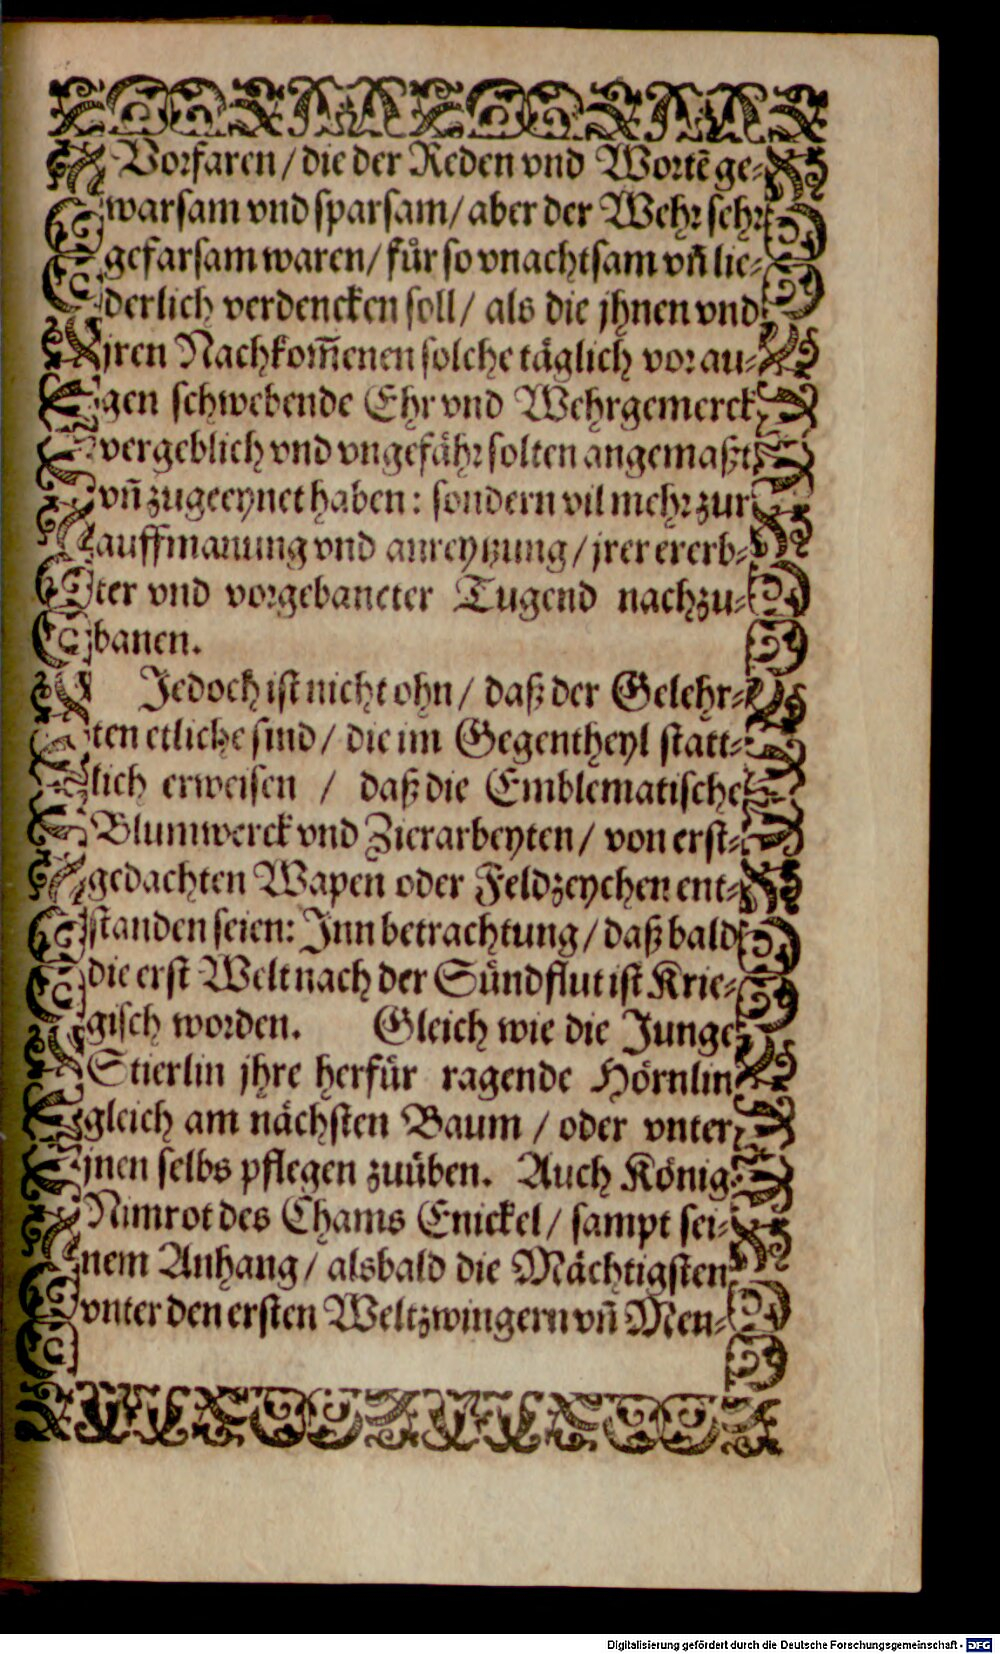 Vorfaren / die der Reden vnd Wortẽ ge-
warsam vnd sparsam / aber der Wehr sehr
gefarsam waren / fůr so vnachtsam vñ lie-
derlich verdencken soll / als die jhnen vnd
jren Nachkom̃enen solche täglich vor au-
gen schwebende Ehr vnd Wehrgemerck
vergeblich vnd vngefähr solten angemaßt
vñ zugeeynet haben: sondern vil mehr zur
auffmanung vnd anreytzung / jrer ererb-
ter vnd vorgebaneter Tugend nachzu-
banen.
Jedoch ist nicht ohn / daß der Gelehr-
ten etliche sind / die im Gegentheyl statt-
lich erweisen / daß die Emblematische
Blumwerck vnd Zierarbeyten / von erst-
gedachten Wapen oder Feldzeychen ent-
standen seien: Inn betrachtung / daß bald
die erst Welt nach der Sůndflut ist Krie-
gisch worden. Gleich wie die Junge
Stierlin jhre herfůr ragende Hörnlin
gleich am nächsten Baum / oder vnter
jnen selbs pflegen zuůben. Auch König
Nimrot des Chams Enickel / sampt sei-
nem Anhang / alsbald die Mächtigsten
vnter den ersten Weltzwingern vñ Men-
Digitalisierung gefördert durch die Deutsche Forschungsgemeinschaft - DFG